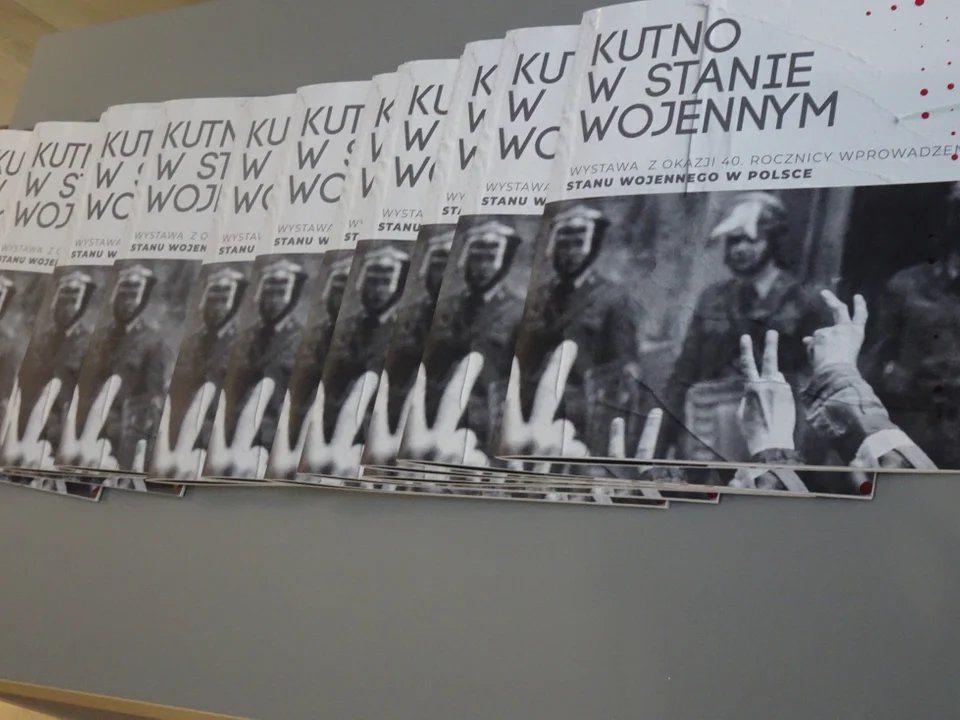 KUTNO
W STANIE
WOJENNYM
WYSTAWA Z OKAZJI 40. ROCZNICY WPROWADZEN
STANU WOJENNEGO W POLSCE